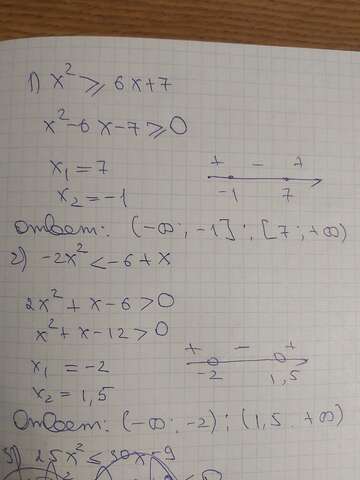 1) x² ⩾ 6x+7
x²-6x-7⩾0
x₁ = 7
x₂ = -1
+ - +
-1 7
Ответ: (-∞; -1] ; [7; +∞)
2) -2x² < -6 + x
2x² + x - 6 > 0
x² + x - 12 > 0
x₁ = -2
x₂ = 1,5
+ - +
-2 1,5
Ответ: (-∞; -2) ; (1,5. +∞)
3) 25x² ≤ 30x-9